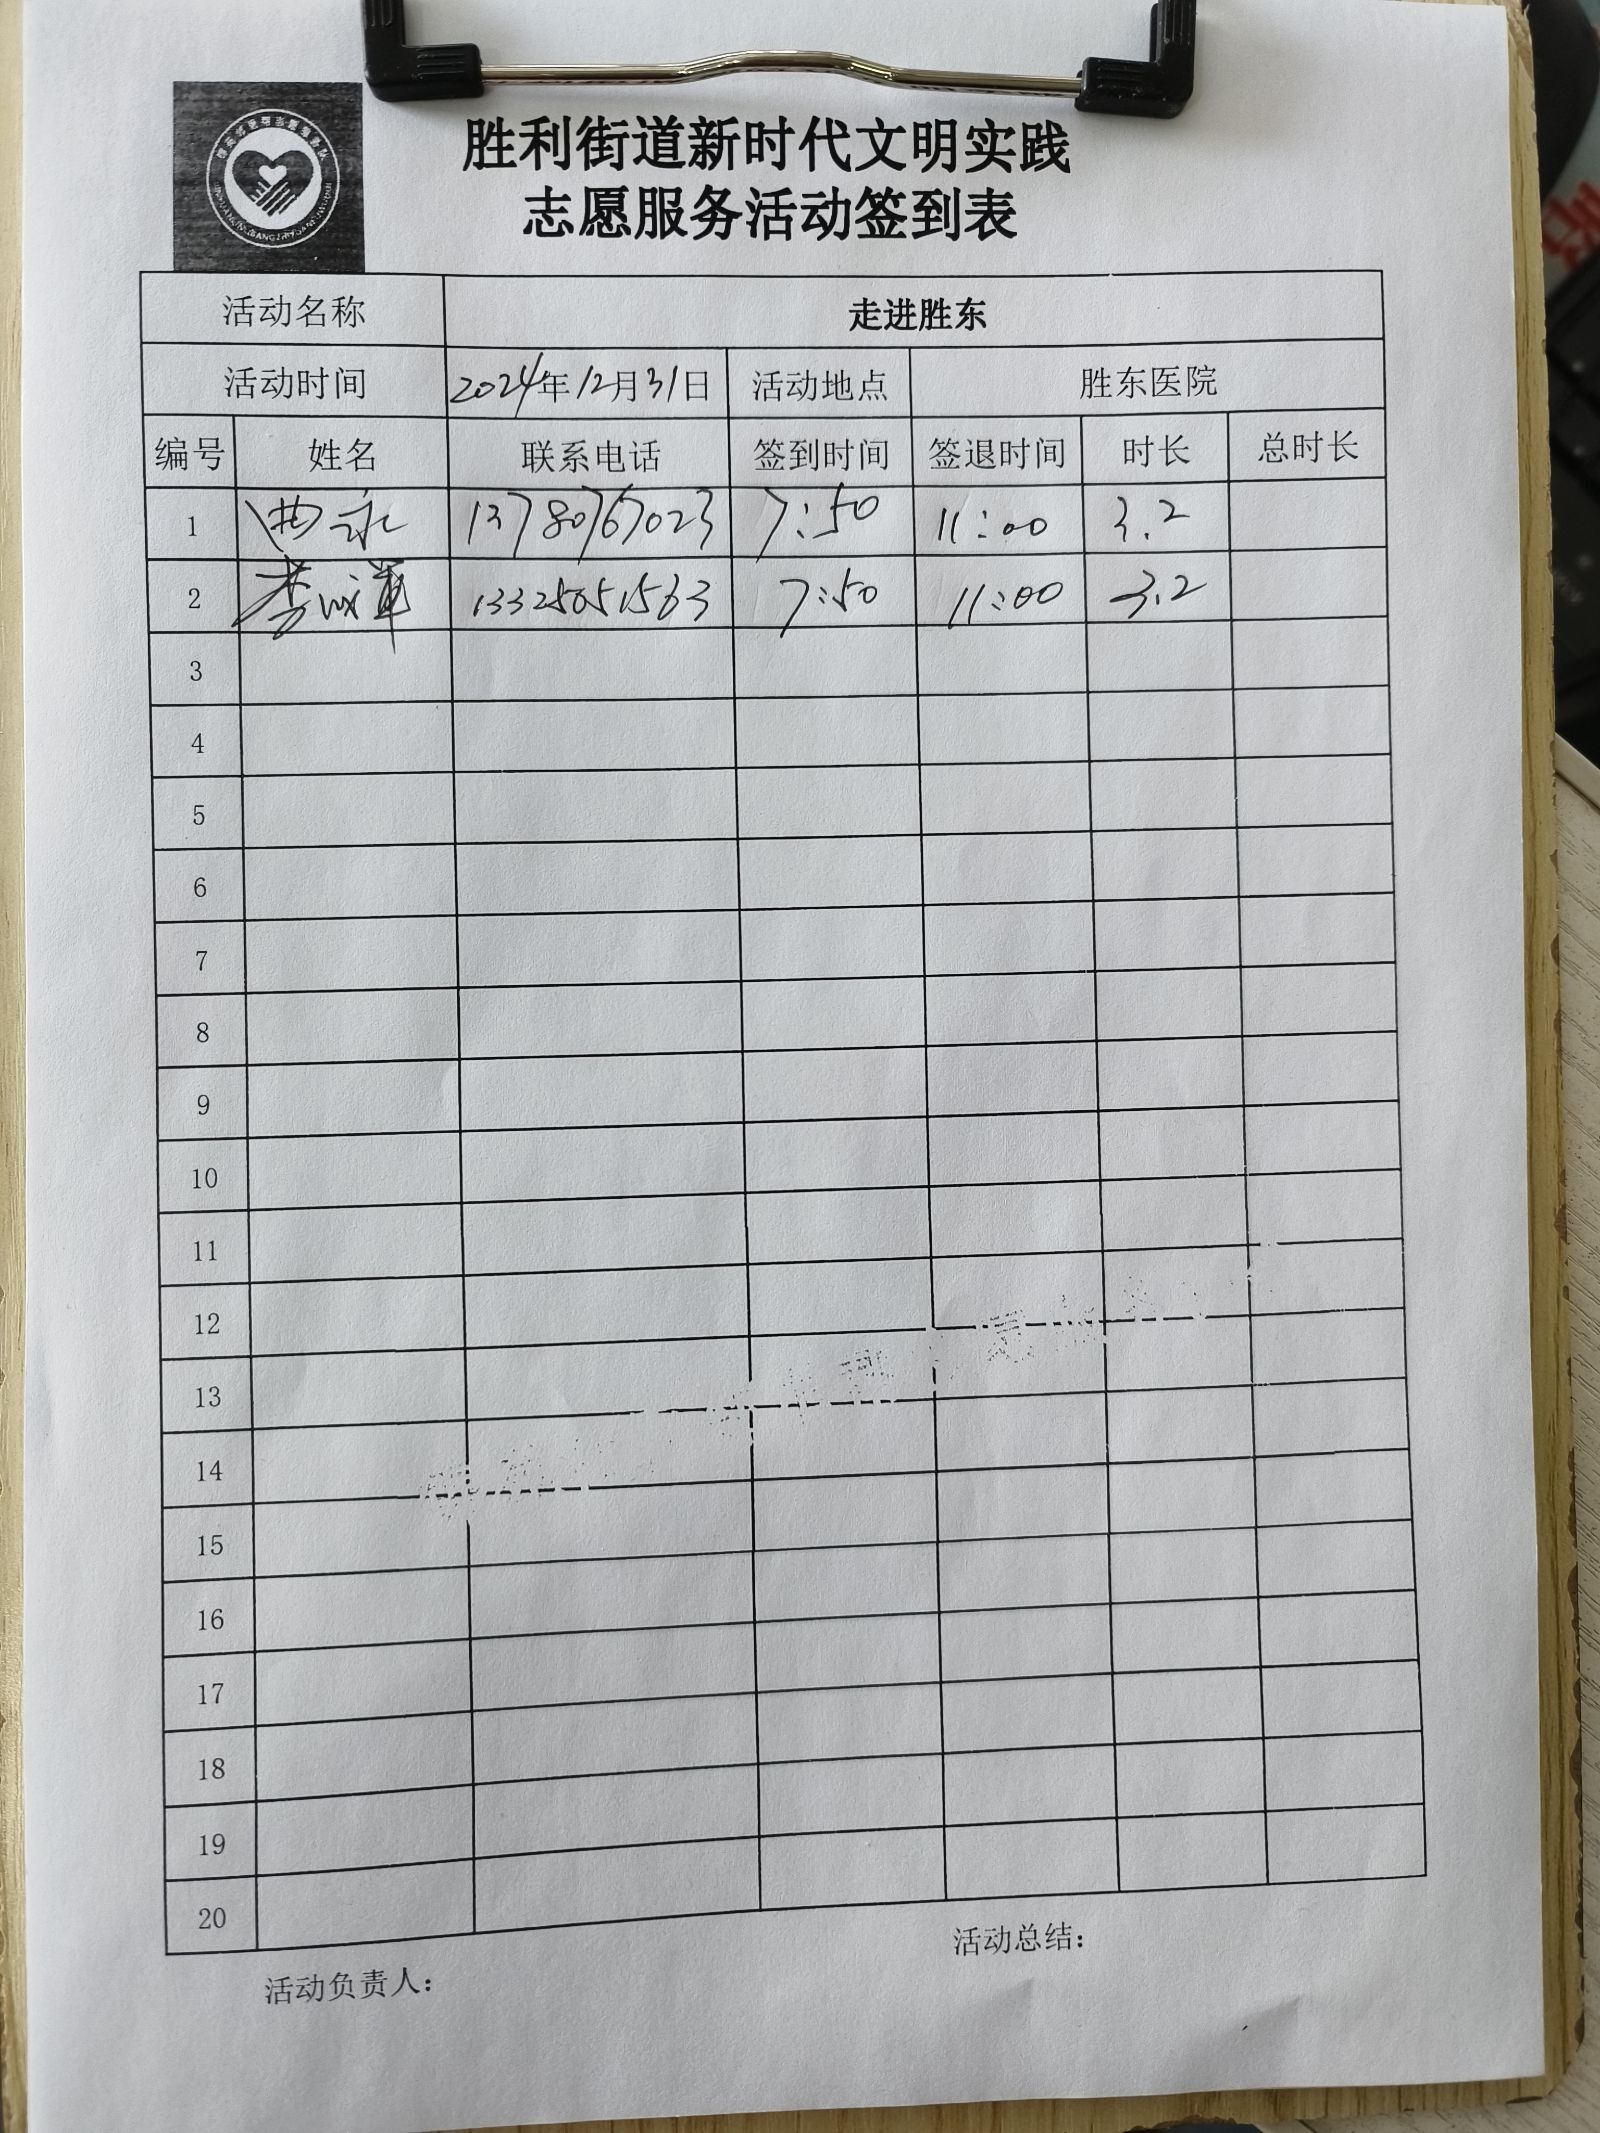 胜利街道新时代文明实践
志愿服务活动签到表
活动名称 走进胜东
活动时间 2024年12月31日 活动地点 胜东医院
编号 姓名 联系电话 签到时间 签退时间 时长 总时长
1 曲永 13780767023 7:50 11:00 3.2
2 李成军 13325051563 7:50 11:00 3.2
3
4
5
6
7
8
9
10
11
12
13
14
15
16
17
18
19
20
活动负责人： 活动总结：